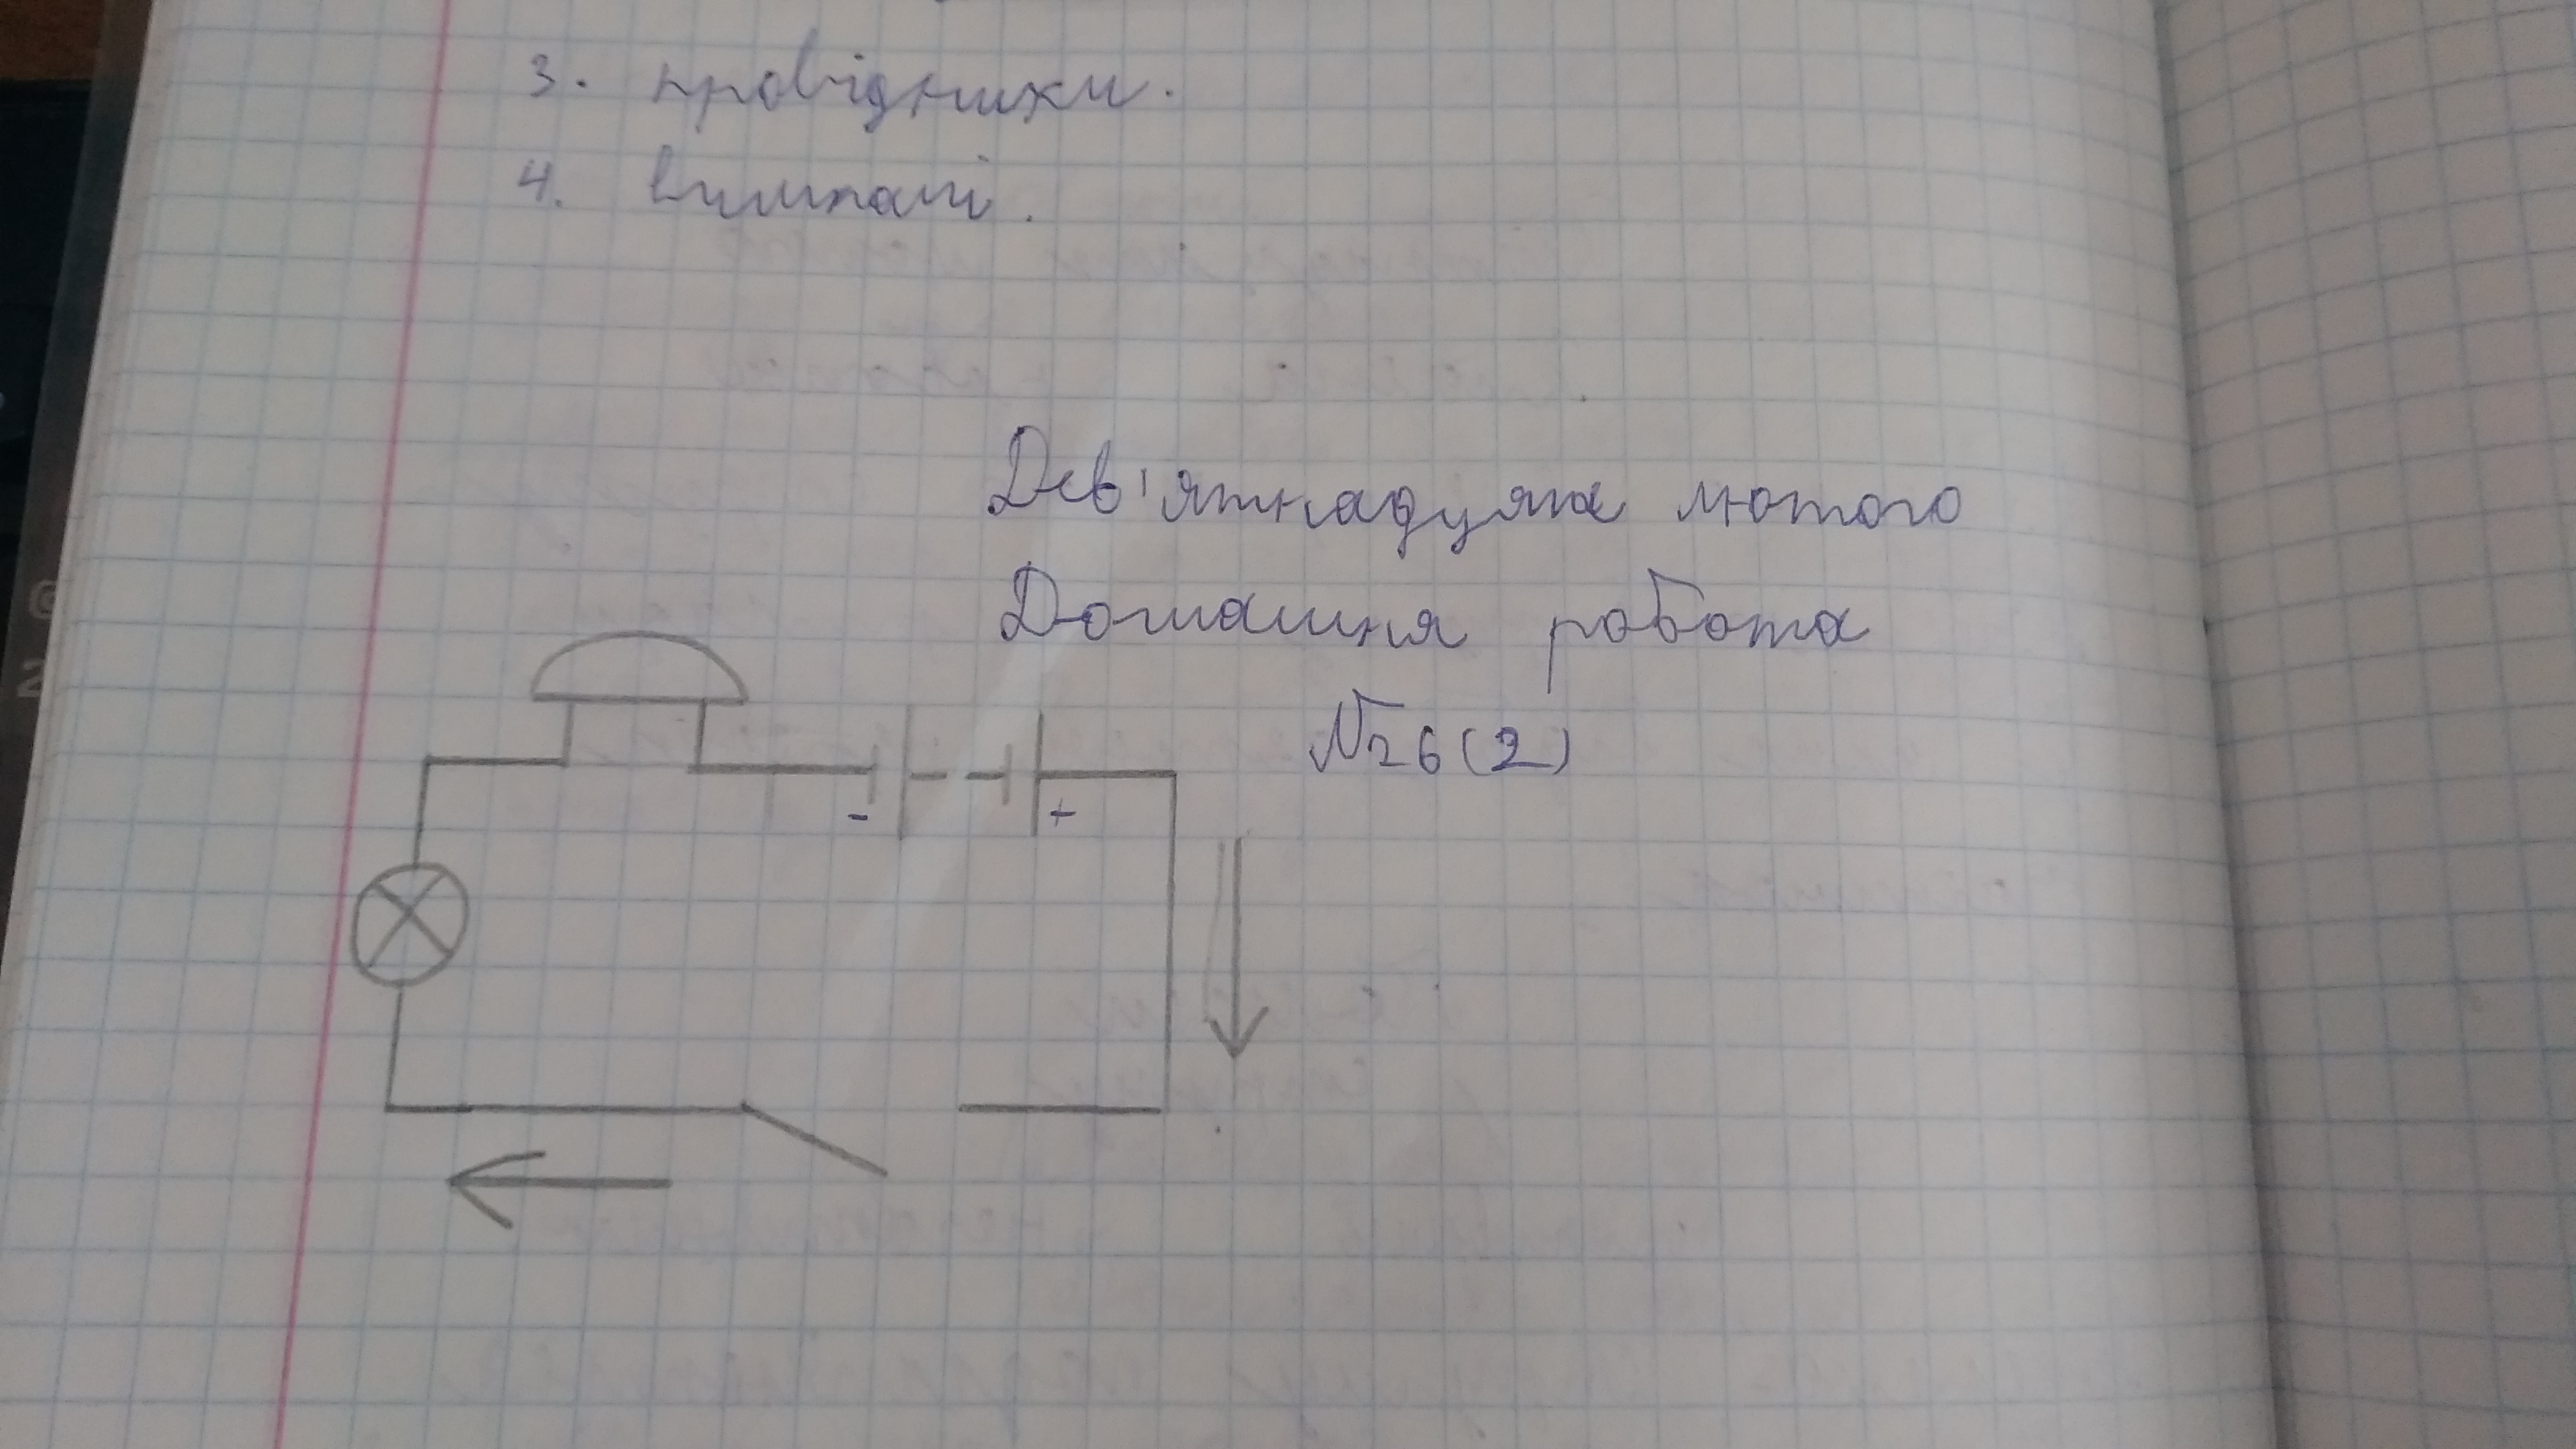 3. провідники.
4. вимикачі.
Дев'ятнадцяте лютого
Домашня робота
№26(2)
- +